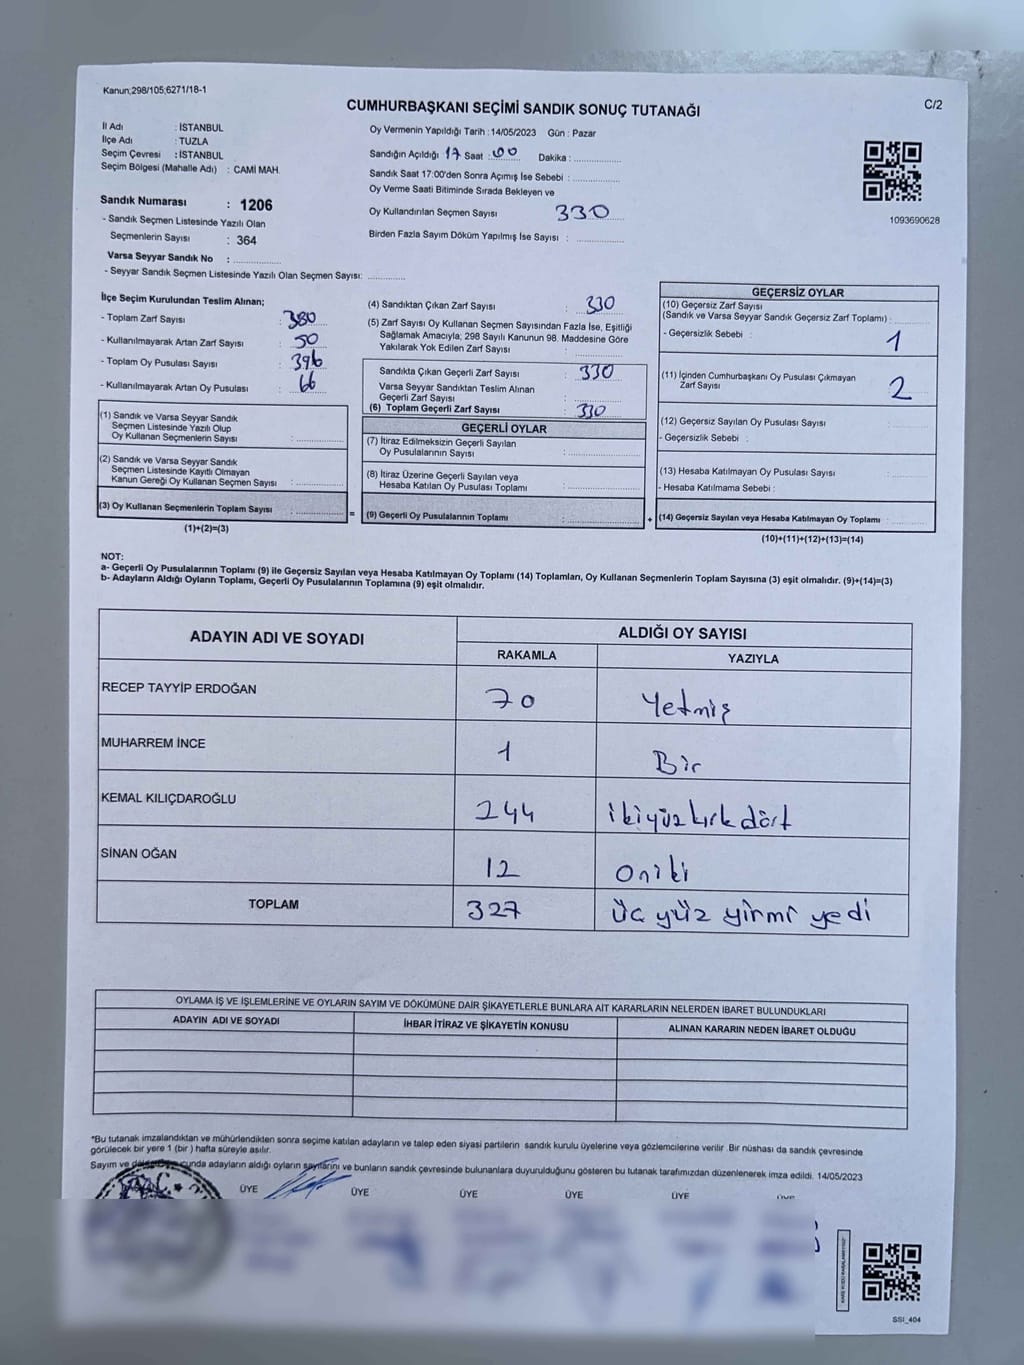 Kanun;298/105;6271/18-1
CUMHURBAŞKANI SEÇİMİ SANDIK SONUÇ TUTANAĞI
C/2
İl Adı : İSTANBUL
İlçe Adı : TUZLA
Seçim Çevresi : İSTANBUL
Seçim Bölgesi (Mahalle Adı) : CAMİ MAH.
Sandık Numarası : 1206
- Sandık Seçmen Listesinde Yazılı Olan
Seçmenlerin Sayısı : 364
Varsa Seyyar Sandık No : ..............
- Seyyar Sandık Seçmen Listesinde Yazılı Olan Seçmen Sayısı: ............
Oy Vermenin Yapıldığı Tarih : 14/05/2023 Gün : Pazar
Sandığın Açıldığı 17 Saat : 00 Dakika : ..............
Sandık Saat 17:00'den Sonra Açımış İse Sebebi : ..............
Oy Verme Saati Bitiminde Sırada Bekleyen ve
Oy Kullandırılan Seçmen Sayısı 330
Birden Fazla Sayım Döküm Yapılmış İse Sayısı : ..............
1093690628
İlçe Seçim Kurulundan Teslim Alınan;
- Toplam Zarf Sayısı : 380
- Kullanılmayarak Artan Zarf Sayısı : 50
- Toplam Oy Pusulası Sayısı : 396
- Kullanılmayarak Artan Oy Pusulası : 66
(1) Sandık ve Varsa Seyyar Sandık
Seçmen Listesinde Yazılı Olup
Oy Kullanan Seçmenlerin Sayısı : ..............
(2) Sandık ve Varsa Seyyar Sandık
Seçmen Listesinde Kayıtlı Olmayan
Kanun Gereği Oy Kullanan Seçmen Sayısı : ..............
(3) Oy Kullanan Seçmenlerin Toplam Sayısı : .............. =
(1)+(2)=(3)
(4) Sandıktan Çıkan Zarf Sayısı : 330
(5) Zarf Sayısı Oy Kullanan Seçmen Sayısından Fazla İse, Eşitliği
Sağlamak Amacıyla; 298 Sayılı Kanunun 98. Maddesine Göre
Yakılarak Yok Edilen Zarf Sayısı : ..............
Sandıkta Çıkan Geçerli Zarf Sayısı : 330
Varsa Seyyar Sandıktan Teslim Alınan
Geçerli Zarf Sayısı : ..............
(6) Toplam Geçerli Zarf Sayısı : 330
GEÇERLİ OYLAR
(7) İtiraz Edilmeksizin Geçerli Sayılan
Oy Pusulalarının Sayısı : ..............
(8) İtiraz Üzerine Geçerli Sayılan veya
Hesaba Katılan Oy Pusulası Toplamı : ..............
(9) Geçerli Oy Pusulalarının Toplamı : .............. +
GEÇERSİZ OYLAR
(10) Geçersiz Zarf Sayısı
(Sandık ve Varsa Seyyar Sandık Geçersiz Zarf Toplamı) :
- Geçersizlik Sebebi : 1
(11) İçinden Cumhurbaşkanı Oy Pusulası Çıkmayan
Zarf Sayısı 2
(12) Geçersiz Sayılan Oy Pusulası Sayısı :
- Geçersizlik Sebebi :
(13) Hesaba Katılmayan Oy Pusulası Sayısı :
- Hesaba Katılmama Sebebi :
(14) Geçersiz Sayılan veya Hesaba Katılmayan Oy Toplamı :
(10)+(11)+(12)+(13)=(14)
NOT:
a- Geçerli Oy Pusulalarının Toplamı (9) ile Geçersiz Sayılan veya Hesaba Katılmayan Oy Toplamı (14) Toplamları, Oy Kullanan Seçmenlerin Toplam Sayısına (3) eşit olmalıdır. (9)+(14)=(3)
b- Adayların Aldığı Oyların Toplamı, Geçerli Oy Pusulalarının Toplamına (9) eşit olmalıdır.
ADAYIN ADI VE SOYADI ALDIĞI OY SAYISI
RAKAMLA YAZIYLA
RECEP TAYYİP ERDOĞAN 70 Yetmiş
MUHARREM İNCE 1 Bir
KEMAL KILIÇDAROĞLU 244 ikiyüz kırk dört
SİNAN OĞAN 12 Oniki
TOPLAM 327 Üç yüz yirmi yedi
OYLAMA İŞ VE İŞLEMLERİNE VE OYLARIN SAYIM VE DÖKÜMÜNE DAİR ŞİKAYETLERLE BUNLARA AİT KARARLARIN NELERDEN İBARET BULUNDUKLARI
ADAYIN ADI VE SOYADI İHBAR İTİRAZ VE ŞİKAYETİN KONUSU ALINAN KARARIN NEDEN İBARET OLDUĞU
*Bu tutanak imzalandıktan ve mühürlendikten sonra seçime katılan adayların ve talep eden siyasi partilerin sandık kurulu üyelerine veya gözlemcilerine verilir .Bir nüshası da sandık çevresinde
görülecek bir yere 1 (bir ) hafta süreyle asılır.
Sayım ve adayların aldığı oyların sayılarını ve bunların sandık çevresinde bulunanlara duyurulduğunu gösteren bu tutanak tarafımızdan düzenlenerek imza edildi. 14/05/2023
ÜYE ÜYE ÜYE ÜYE ÜYE
SSI_404